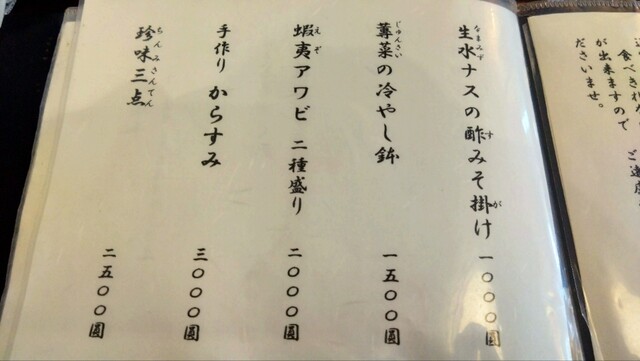 生水ナスの酢みそ掛け 一〇〇〇圓
蓴菜の冷やし鉢 一五〇〇圓
蝦夷アワビ 二種盛り 二〇〇〇圓
手作り からすみ 三〇〇〇圓
珍味三点 二五〇〇圓
が出来ますので
ださいませ。